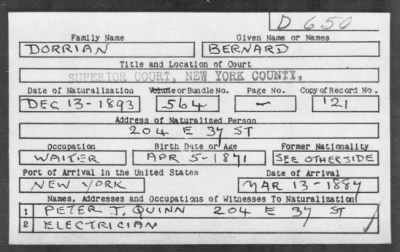 D 650
Family Name Given Name or Names
DORRIAN BERNARD
Title and Location of Court
SUPERIOR COURT, NEW YORK COUNTY,
Date of Naturalization Volume or Bundle No. Page No. Copy of Record No.
DEC 13-1893 564 — 121
Address of Naturalized Person
204 E 37 ST
Occupation Birth Date or Age Former Nationality
WAITER APR 5-1871 SEE OTHERSIDE
Port of Arrival in the United States Date of Arrival
NEW YORK MAR 13-1887
Names, Addresses and Occupations of Witnesses To Naturalization
1 PETER J. QUINN 204 E 37 ST
2 ELECTRICIAN